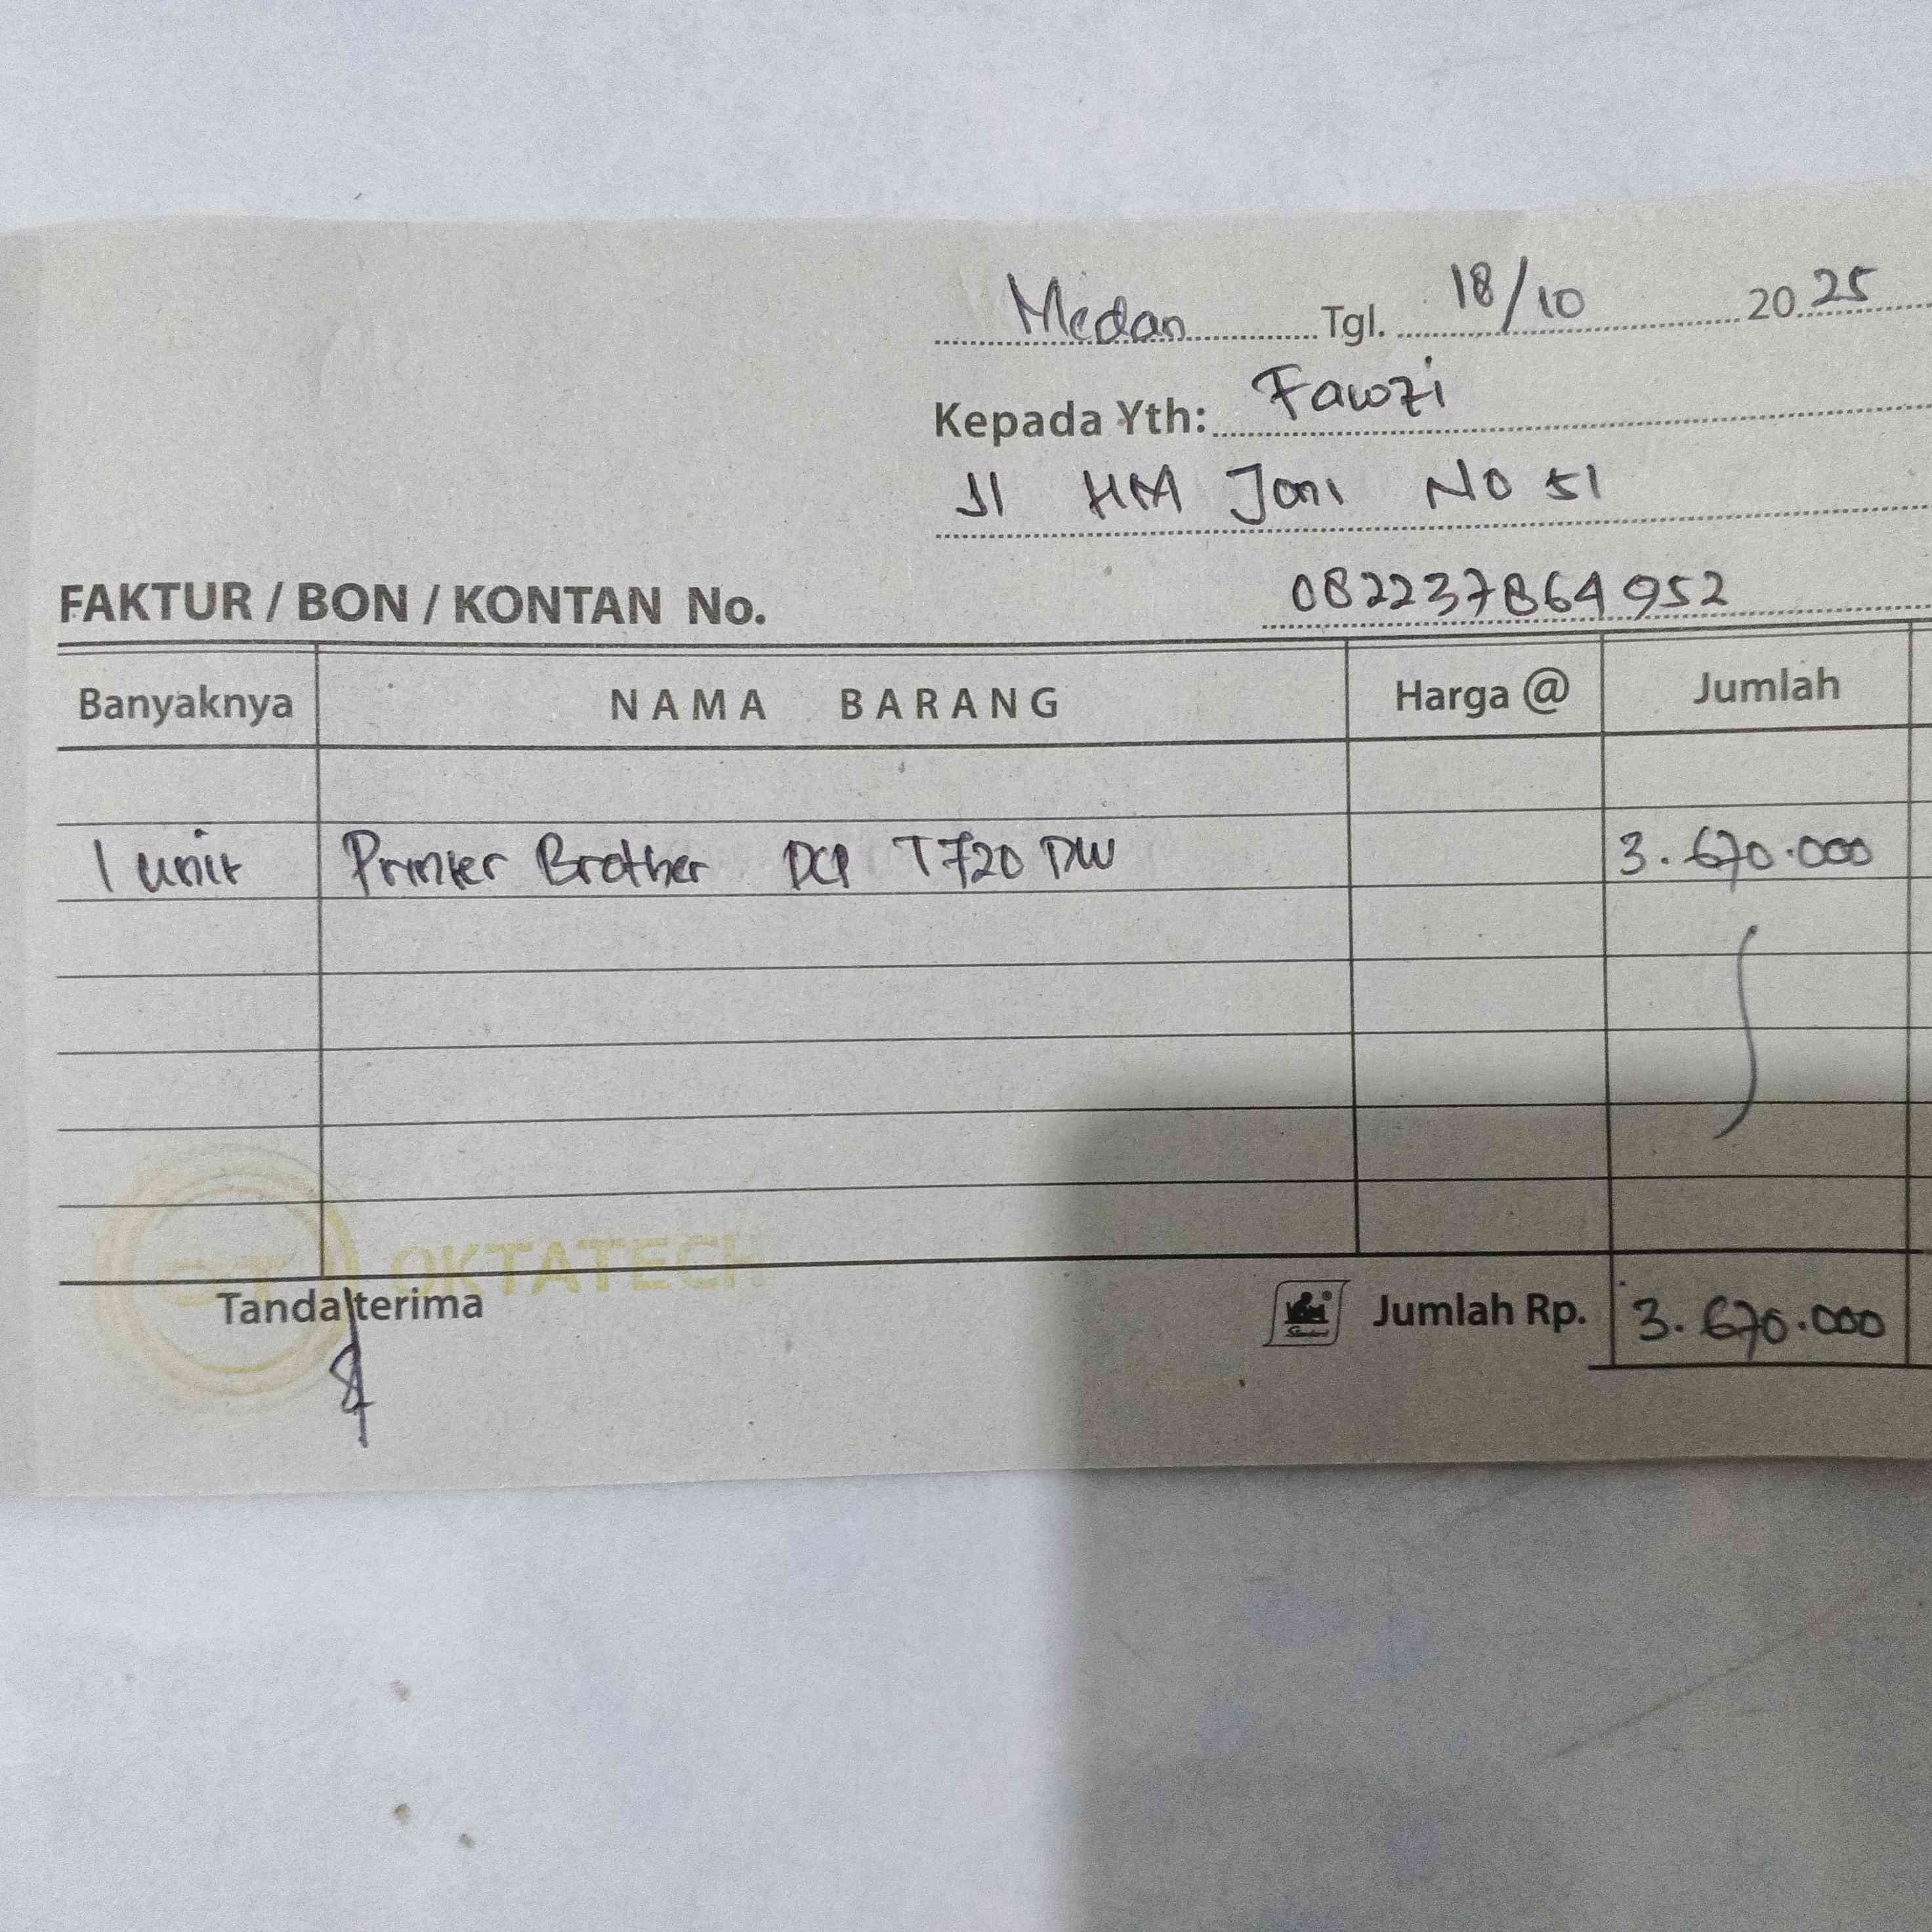 Medan Tgl. 18/10 2025
Kepada Yth: Fawzi
Jl HM Joni No 51
FAKTUR / BON / KONTAN No. 082237864952
Banyaknya NAMA BARANG Harga @ Jumlah
1 unit Printer Brother DCP T720 DW 3.670.000
OKTATECH
Tanda terima Jumlah Rp. 3.670.000